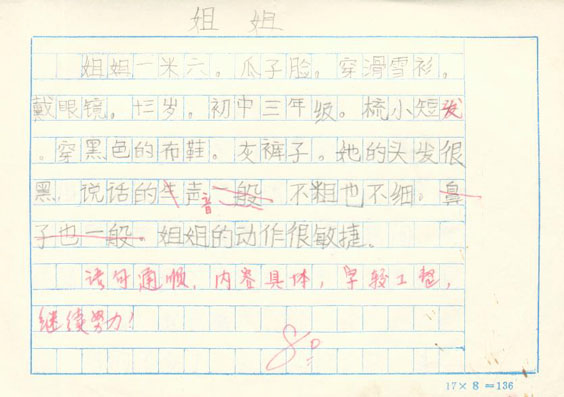 姐姐
姐姐一米六。瓜子脸。穿滑雪衫。
戴眼镜。十三岁。初中三年级。梳小短发
。穿黑色的布鞋。灰裤子。她的头发很
黑。说话的声音一般 不粗也不细。鼻
子也一般。姐姐的动作很敏捷。
语句通顺，内容具体，字较工整，
继续努力！
80
17×8=136